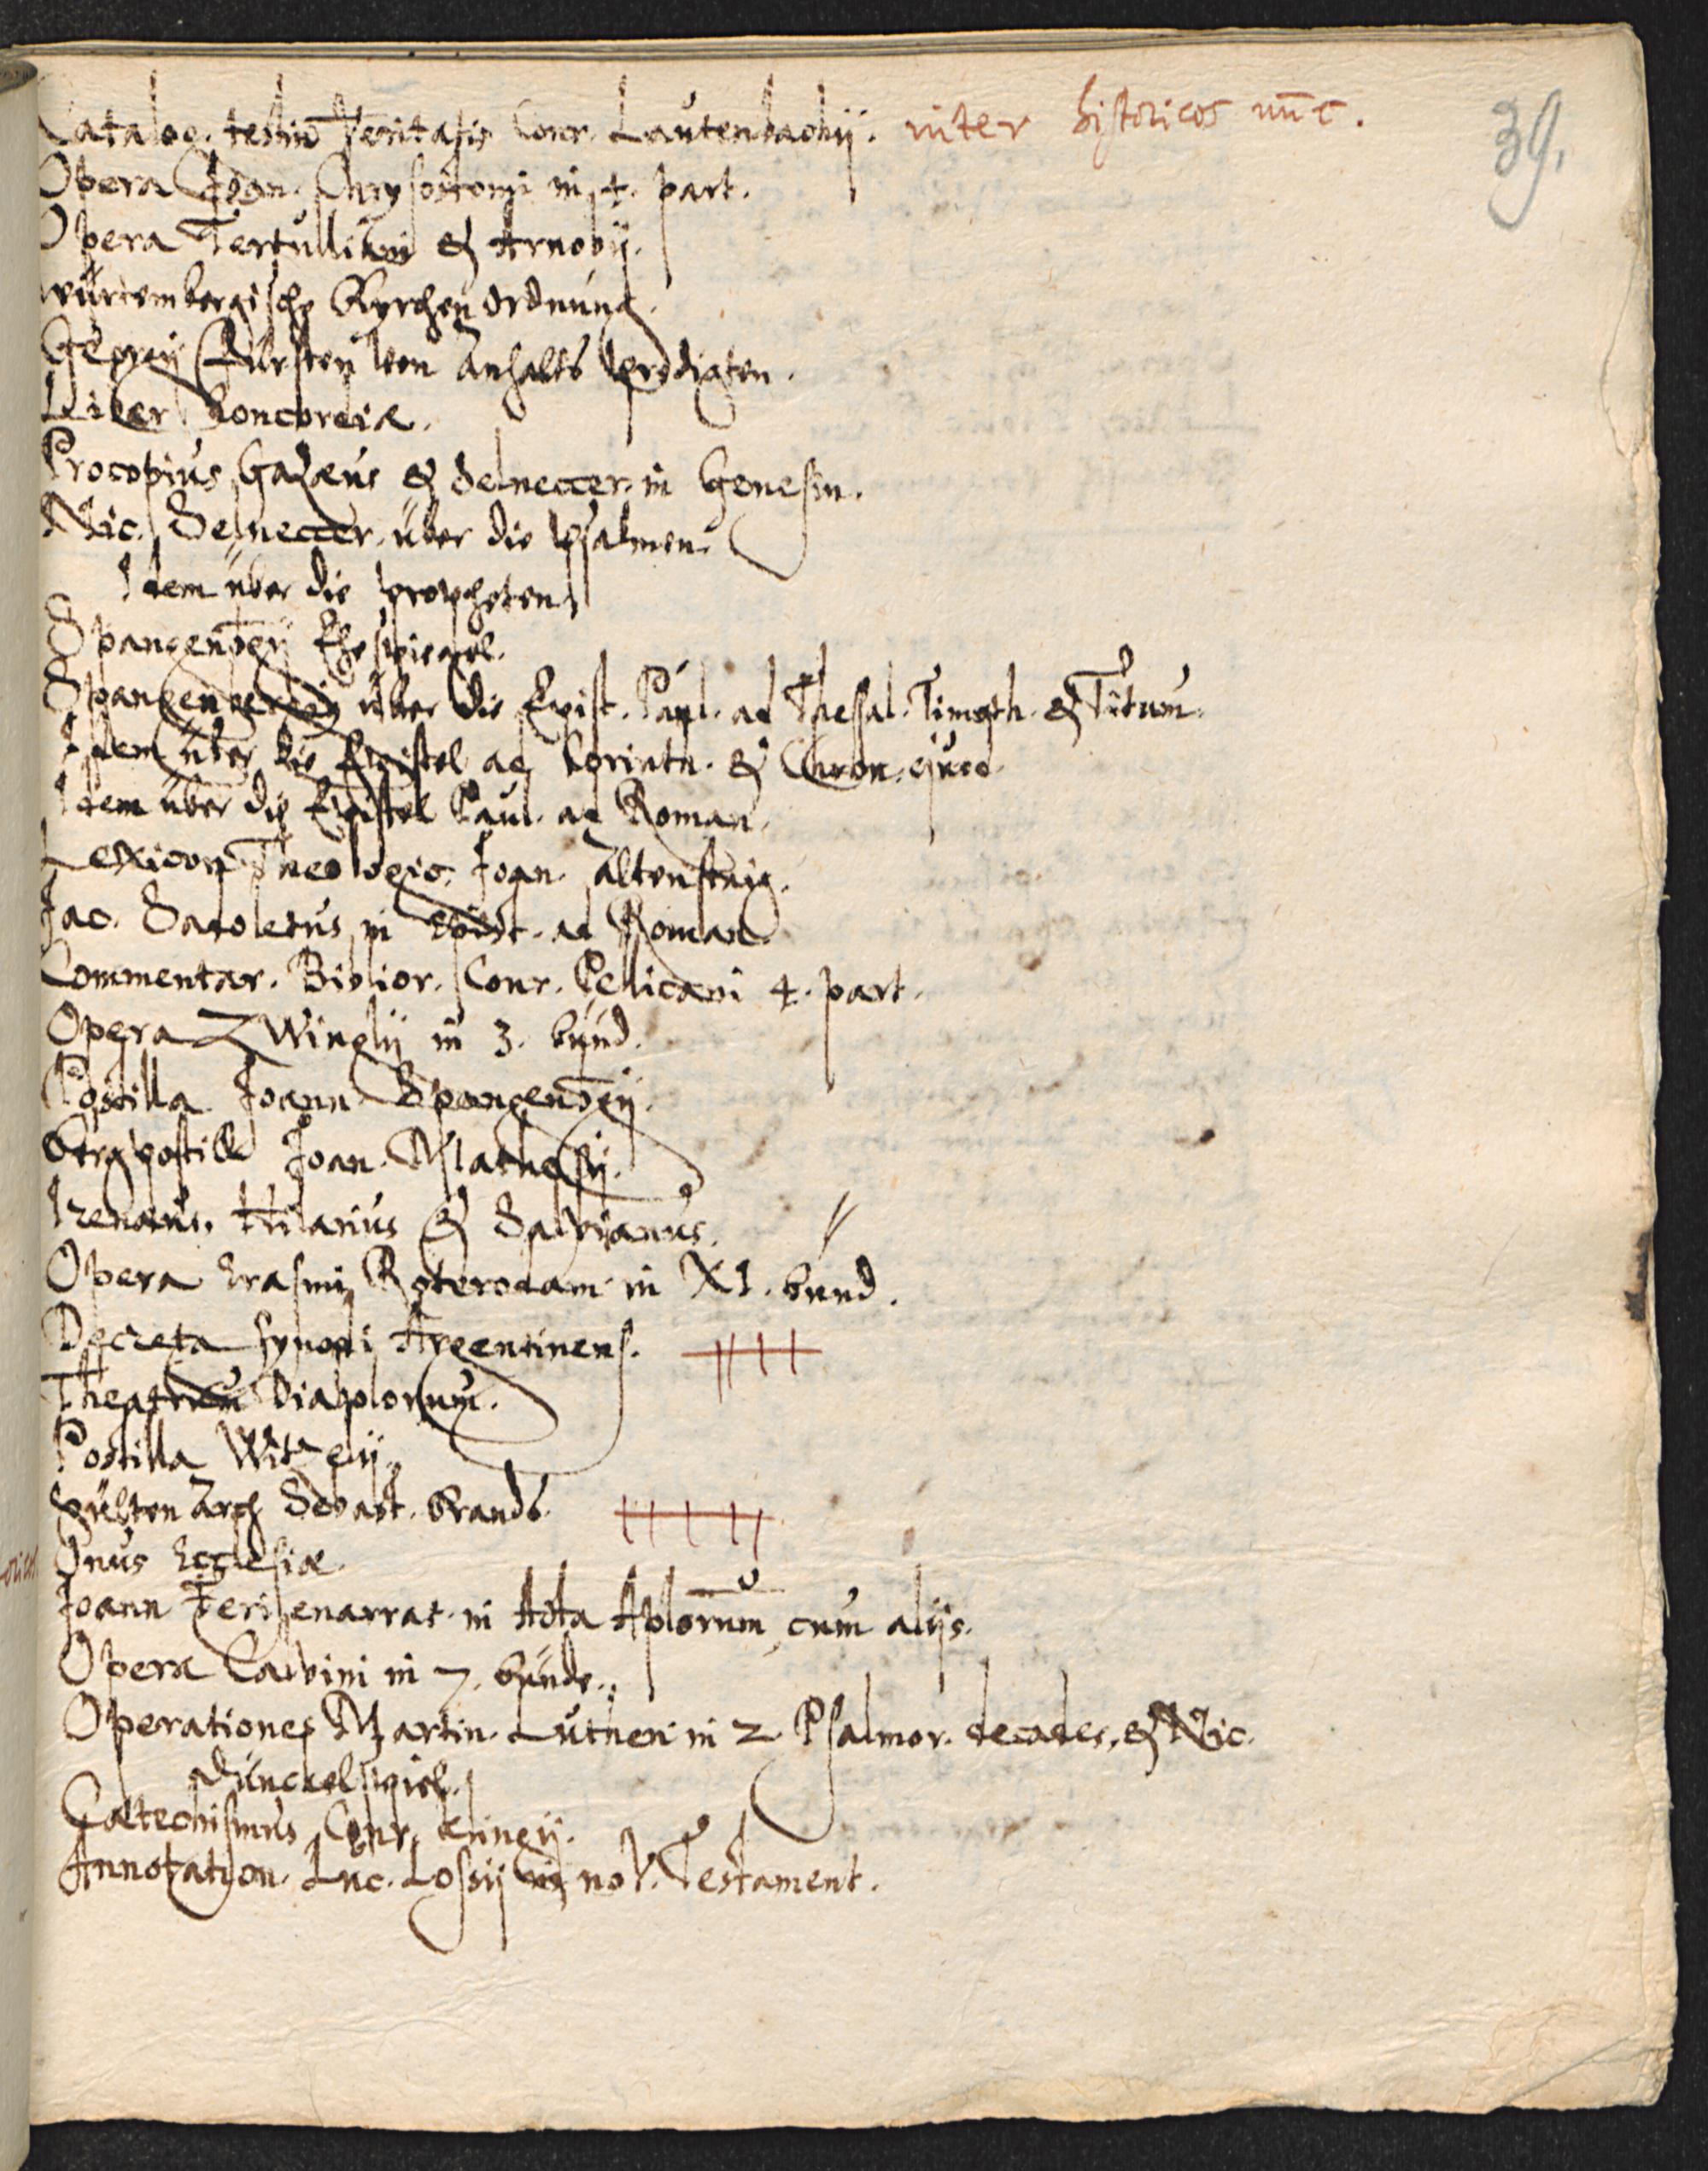 Catalog. testiū Veritatis Conr. Lautenbachij. inter historicos nūc.
39.
Opera Joan. Chrysostomi in 4. part.
Opera Tertulliani & Arnobij.
würtembergische Kyrchen ordnung.
Georgij Fürsten von Anhalts predigten.
Liber Concordiæ.
Procopius Gazæus & Selneccer. in Genesin.
Nic. Selneccer. über die Psalmen.
Idem über die propheten.
Spangenbergij Ehespiegel.
Spangenbergij über die Epist. Paul. ad Thessal. Timoth. & Titum.
Idem über die Epistel ad Corinth. &
Idem über die Epistel Paul. ad Roman.
Lexicon Theologic. Joan. Altenstaig.
Jac. Sadoletus in Epist. ad Roman.
Commentar. Biblior. Conr. Pelicani 4. part.
Opera Zwinglij in 3. bünd.
Postilla Joann. Spangenbergij.
Bergpostill Joan. Mathesij.
Irenæus. Hilarius & Salvianus.
Opera Erasmi Roterodam. in XI. bünd.
Decreta synodi Argentinens.
Theatrum Diabolorum.
Postilla Witzelij.
Sebast. Brands.
Onus Ecclesiæ
Joann Feri enarrat. in Acta Aplorum cum alijs.
Opera Calvini in 7. bünde.
Operationes Martin. Lutheri in 2 Psalmor. decades, & Nic.
Dünckelspiel.
Catechismus Conr. Klingij.
Annotation. Luc. Lossij in nov. Testament.